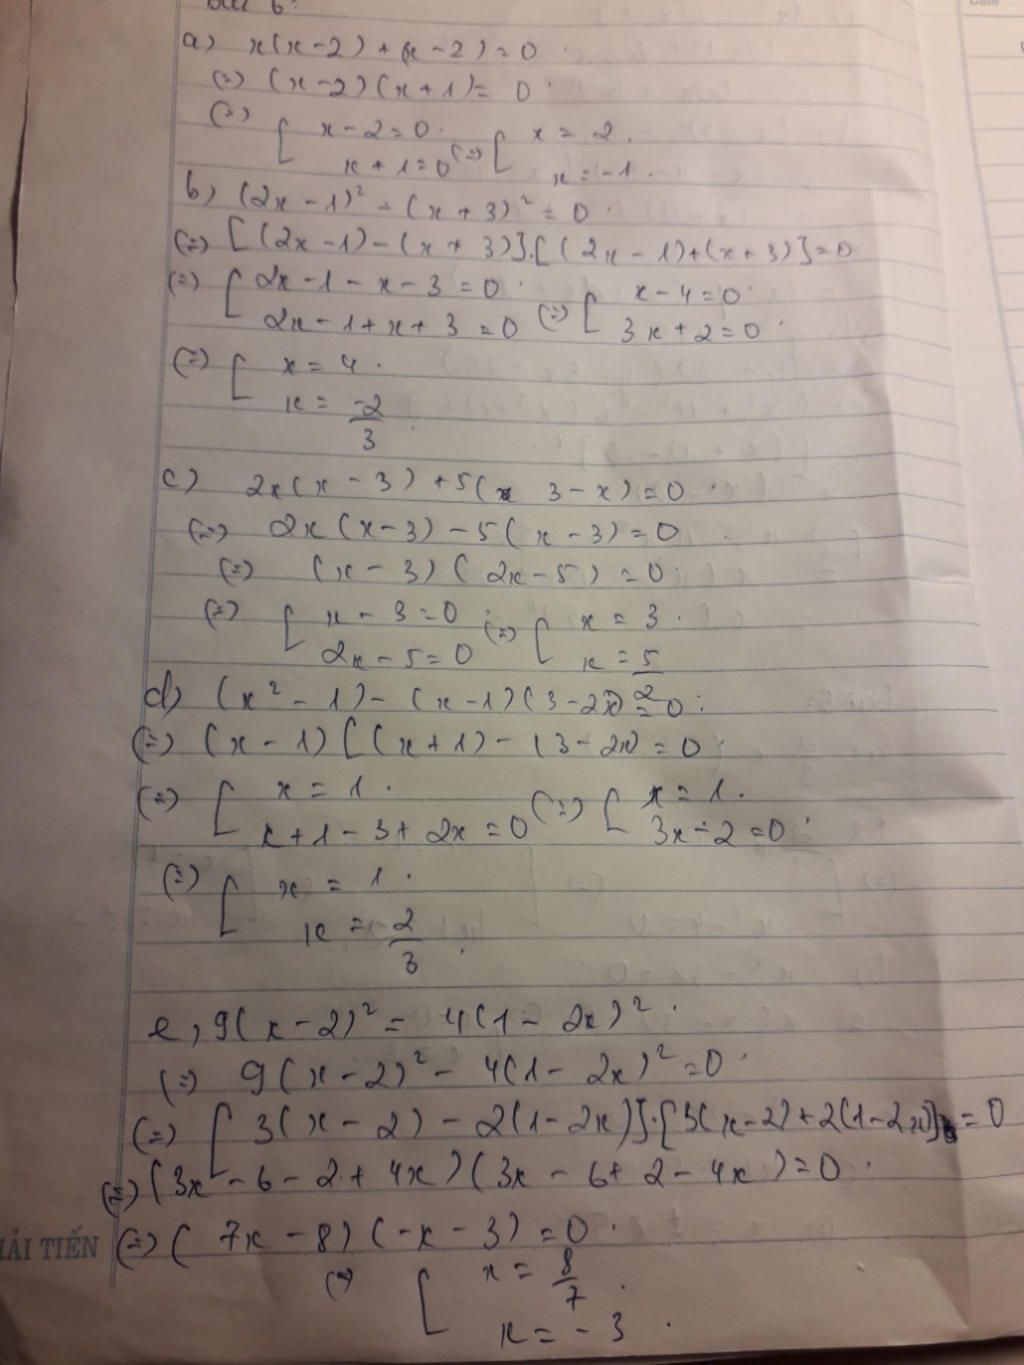 Bài 6:
a) x(x-2) + (x-2) = 0.
(=) (x-2)(x+1) = 0.
(=) [ x-2=0. (=) [ x = 2.
x+1=0 x = -1.
b) (2x-1)² - (x+3)² = 0.
(=) [(2x-1)-(x+3)].[(2x-1)+(x+3)]=0
(=) [ 2x-1-x-3=0. (=) [ x-4=0.
2x-1+x+3=0 3x+2=0.
(=) [ x = 4.
x = -2/3
c) 2x(x-3) + 5( 3-x) = 0.
(=) 2x(x-3) - 5(x-3) = 0
(=) (x-3)(2x-5) = 0.
(=) [ x-3=0. (=) [ x = 3.
2x-5=0 x = 5/2
d) (x²-1) - (x-1)(3-2x) = 0.
(=) (x-1)[(x+1)-(3-2x) = 0.
(=) [ x = 1. (=) [ x = 1.
x+1-3+2x=0 3x-2=0.
(=) [ x = 1.
x = 2/3.
e, 9(x-2)² = 4(1-2x)².
(=) 9(x-2)² - 4(1-2x)² = 0.
(=) [3(x-2)-2(1-2x)].[3(x-2)+2(1-2x)] = 0
(=) (3x-6-2+4x)(3x-6+2-4x) = 0.
(=) (7x-8)(-x-3) = 0.
(=) [ x = 8/7.
x = -3.
ẢI TIẾN